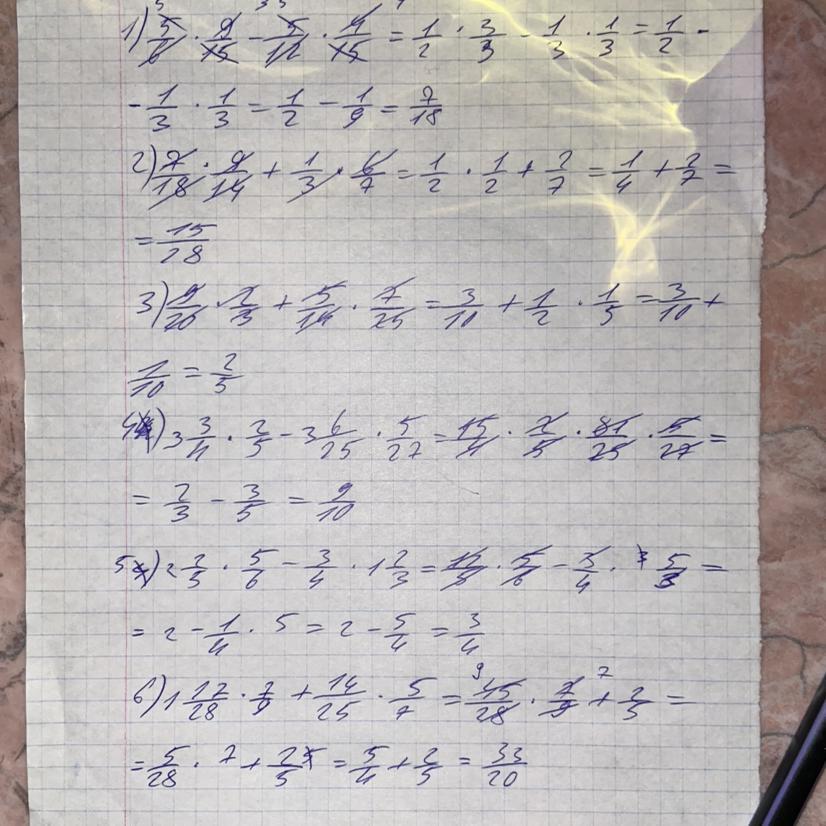 1) 5/6 · 9/15 - 5/12 · 4/15 = 1/2 · 3/3 - 1/3 · 1/3 = 1/2 -
- 1/3 · 1/3 = 1/2 - 1/9 = 7/18
2) 7/18 · 9/14 + 1/3 · 6/7 = 1/2 · 1/2 + 2/7 = 1/4 + 2/7 =
= 15/28
3) 9/20 · 2/3 + 5/14 · 7/25 = 3/10 + 1/2 · 1/5 = 3/10 +
1/10 = 2/5
4) 3 3/4 · 2/5 - 3 6/25 · 5/27 = 15/4 · 2/5 · 81/25 · 5/27 =
= 2/3 - 3/5 = 9/10
5) 2 2/5 · 5/6 - 3/4 · 1 2/3 = 12/5 · 5/6 - 3/4 · 5/3 =
= 2 - 1/4 · 5 = 2 - 5/4 = 3/4
6) 1 17/28 · 7/9 + 14/25 · 5/7 = 45/28 · 7/9 + 2/5 =
= 5/28 · 7 + 2/5 = 5/4 + 2/5 = 33/20